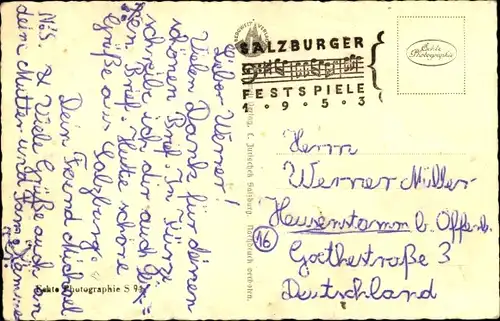 Lieber Werner!
Vielen Dank für deinen
schönen Brief. In Kürze
schreibe ich dir auch
einen Brief. Heute schöne
Grüße aus Salzburg.
Dein Freund Michael
N.S. Viele Grüße auch an
deine Mutter und
SALZBURGER
FESTSPIELE
1953
Echte
Photographie
Herrn
Werner Müller
Heusenstamm b. Offenb.
16
Goethestraße 3
Deutschland
Echte Photographie S 9
Jurischek Salzburg. Nachdruck verboten.